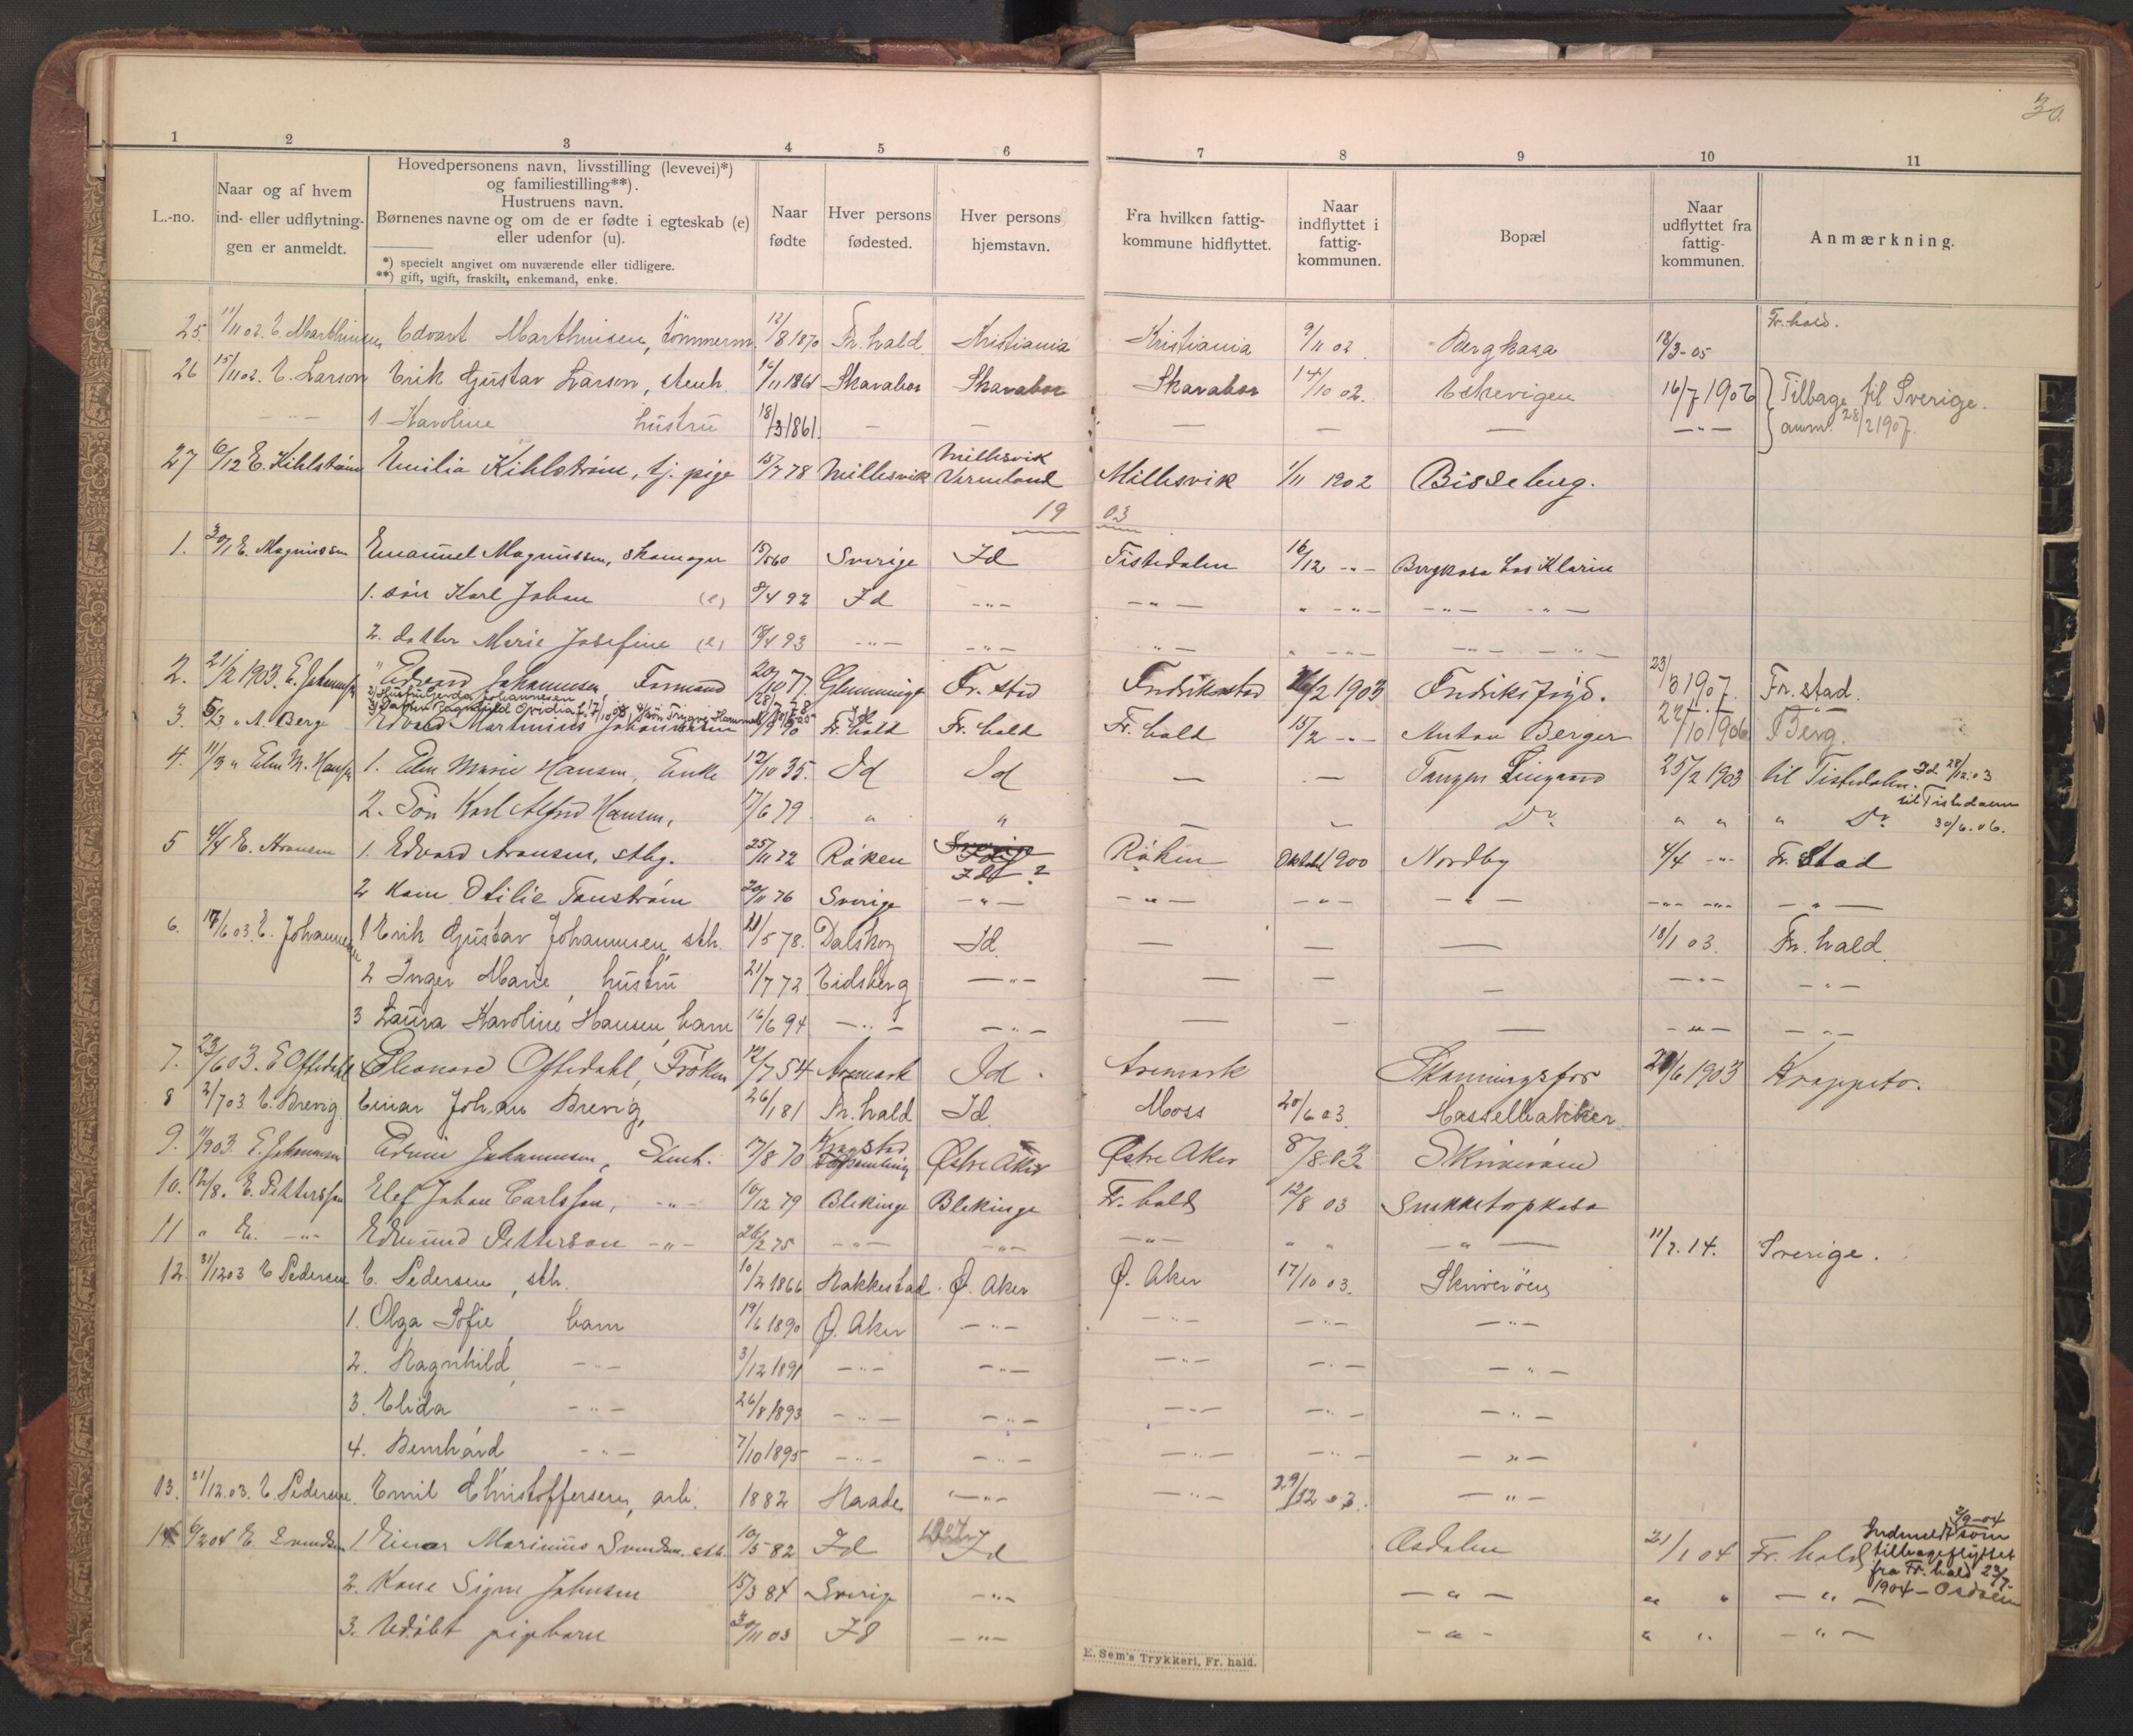 30.
1 2 3 4 5 6 7 8 9 10 11
L.-no.
Naar og af hvem
ind- eller udflytnin-
gen er anmeldt.
Hovedpersonens navn, livsstilling (levevei)*)
og familiestilling**).
Hustruens navn.
Børnenes navne og om de er fødte i egteskab (e)
eller udenfor (u).
*) specielt angivet om nuværende eller tidligere.
**) gift, ugift, fraskilt, enkemand, enke.
Naar
fødte
Hver persons
fødested.
Hver persons
hjemstavn.
Fra hvilken fattig-
kommune hidflyttet.
Naar
indflyttet i
fattig-
kommunen.
Bopæl
Naar
udflyttet fra
fattig-
kommunen.
Anmærkning.
25. 11/11 02. E. Marthinsen Edvart Marthinsen, tømmerm. 12/8 1870 Fr. hald Kristiania Kristiania 9/11 02 Bergkasa 18/3-05 Fr. hald.
26 15/11 02. E. Larson Erik Gustav Larson, stenh. 16/11 1861 Skarabor Skarabor Skarabor 14/10 02. Eskevigen 16/7 1906 Tilbage til Sverige.
— " — 1. Karoline hustru 18/3 1861. — — — — — — " — anm. 28/2 1907.
27 6/12 E. Kihlstrøm Emilia Kihlstrøm, tj. pige 15/7 78 Millesvik Millesvik Vermland Millesvik 1/11 1902 Bisseberg.
19 03
1. 30/1 E. Magnussen Emanuel Magnussen, skomager 15/5 60 Sverige Id Tistedalen 16/12 - " - Bergkasa hos Klarine
1. søn Karl Johan (e) 8/4 92 Id - " - - " - " - " - - " - - " -
2. datter Marie Josefine (e) 18/4 93 - " - - " - - " - " - " - - " - - " -
2. 21/2 1903. E. Johannesen " Edvard Johannesen, Formand 20/10 77. Glemminge Fr. stad Fredrikstad 26/2 1903 Fredriksfryd. 23/3 1907. Fr. stad.
2) Hustru Gerda Johannesen 28/7 78
3) Datter Ragnhild Ovidia f. 17/10 03 4) Søn Trygve Hammel Id
3. 5/3 " A. Berge Edvard Martinius Johannessen 11/9 90 Fr. hald Fr. hald Fr. hald 15/2 - " - Anton Berger 22/10 1906 Berg.
4. 11/3 " Elen M. Hansen 1. Elen Marie Hansen, Enke 12/10 35. Id Id — — Tangen 25/2 1903 til Tistedalen. Id 28/12.03
2. Søn Karl Alfred Hansen, 17/6 79 " " — — Do " " " Do til Tistedalen 30/6.06.
5 4/4 E. Aronsen 1. Edvard Aronsen, sthg. 25/11 72 Røken Id ? Røken Oktober 1900 Nordby 4/4 - " - Fr. Stad
2 Kone Otilie Tonstrøm 20/11 76 Sverige - " - - " - - " - - " - - " - - " - - " -
6. 17/6 03. E. Johannesen 1 Erik Gustav Johannesen, sth. 21/5 78. Dalskog Id. — — — 18/1 03. Fr. hald.
2 Inger Marie, hustru 21/7 72 Eidsberg - " - — — — - " - - " -
3 Laura Karoline Hansen, barn 16/6 94 - " - - " - — — — - " - - " -
7. 23/6 03. E Oftedahl Eleonore Oftedahl, Frøken 12/7 54 Aremark Id. Aremark Skanningsfos 21/6 1903 Krappeto.
8 2/7 03. E. Brevig Einar Johan Brevig, 26/1 81 Fr. hald Id Moss 20/6 03. Hasselbakken
9. 11/9 03. E. Johannesen Edvin Johannesen, Stenh. 17/8 70 Kragstad Østre Aker Østre Aker 8/8 03 Skriverøen
10. 12/8. E. Pettersson Elef Johan Carlsson, - " - 10/12 79 Blekinge Blekinge Fr. hald 12/8 03 Snekketorpkasa
11 " E. - " - Edmund Petterson - " - 26/2 75 - " - - " - - " - " " - " - 11/7.14. Sverige.
12. 31/12 03 E Pedersen E. Pedersen, sth. 10/2 1866 Rakkestad. Ø. Aker Ø. Aker 17/10 03. Skriverøen
1. Olga Sofie, barn 19/6 1890 Ø. Aker - " - - " - - " - - " -
2. Ragnhild, - " - 3/12 1891 - " - - " - - " - - " - - " -
3. Elida - " - 26/8 1893 - " - - " - - " - - " - - " -
4. Bernhard - " - 7/10 1895 - " - - " - - " - - " - - " -
13. 31/12.03. E. Pedersen. Emil Christoffersen, arb. 1882 Raade - " - - " - 29/12 03. - " -
14 6/2 04 E. Svendsen 1 Einar Marinius Svendsen, stb. 10/5 82 Id Id Osdalen 21/1 04 Fr. hald 2/9-04 Indmeldt som tilbageflyttet fra Fr. hald 23/7-1904 - Osdalen
2. Kone Signe Johnsen 15/3 84 Sverig - " - - " - " " - " -
3. Udøbt pigebarn 30/11 03 Id - " - - " - " " - " -
E. Sem's Trykkeri, Fr. hald.